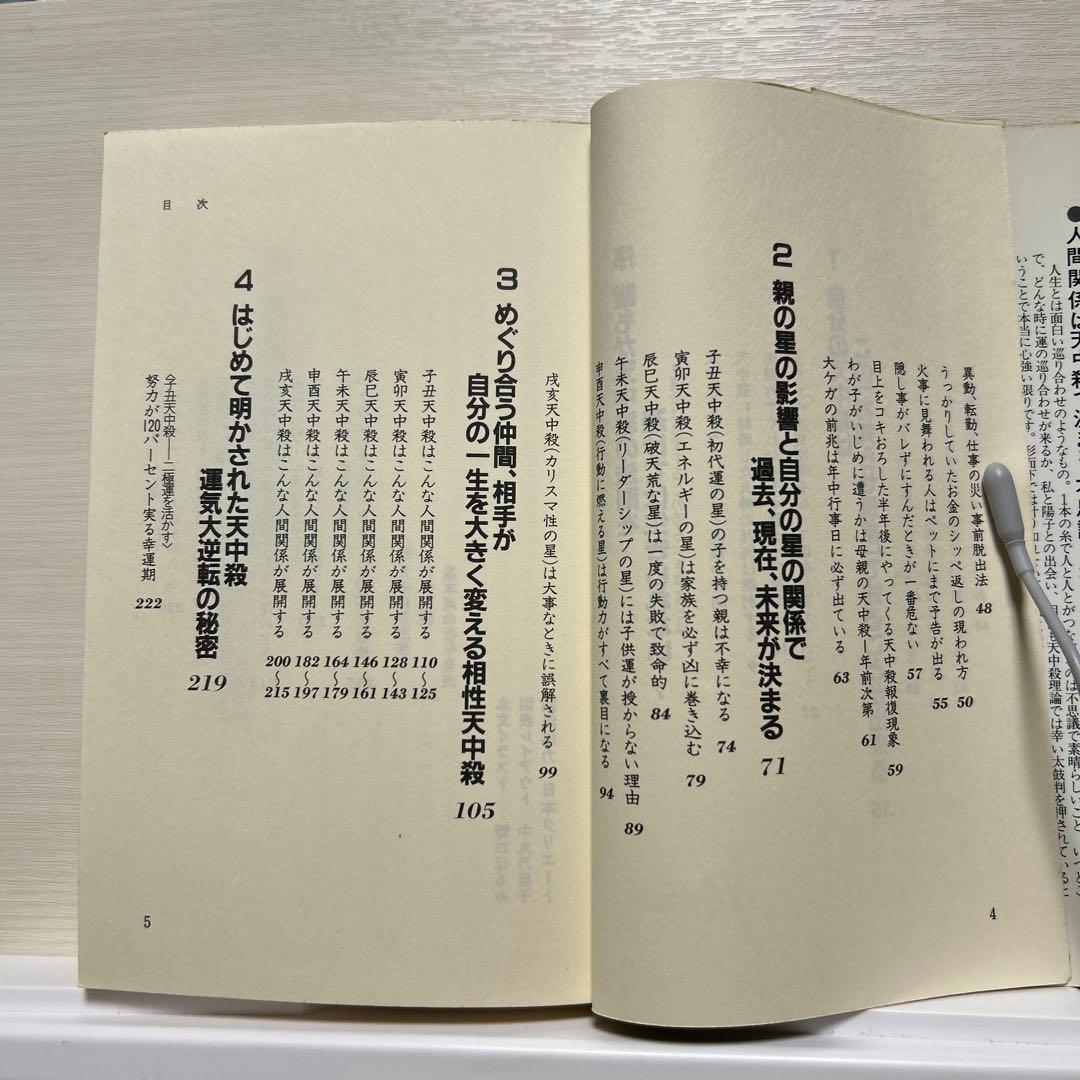 ●人間関係は天中殺
人生とは面白い巡り合わせのようなもの。1本の糸で人と人とがつな
で、どんな時に運の巡り合わせが来るか、私と陽子との出会い、
いうことで本当に心強い限りです。
異動、転勤、仕事の災い事前脱出法 48
うっかりしていたお金のシッペ返しの現われ方 50
火事に見舞われる人はペットにまで予告が出る 55
隠し事がバレずにすんだときが一番危ない 57
目上をコキおろした半年後にやってくる天中殺報復現象 59
わが子がいじめに遭うかは母親の天中殺一年前次第 61
大ケガの前兆は年中行事日に必ず出ている 63
2 親の星の影響と自分の星の関係で
過去、現在、未来が決まる 71
子丑天中殺(初代運の星)の子を持つ親は不幸になる 74
寅卯天中殺(エネルギーの星)は家族を必ず凶に巻き込む 79
辰巳天中殺(破天荒な星)は一度の失敗で致命的 84
午未天中殺(リーダーシップの星)には子供運が授からない理由 89
申酉天中殺(行動に燃える星)は行動力がすべて裏目になる 94
4
目次
戌亥天中殺(カリスマ性の星)は大事なときに誤解される 99
3 めぐり合う仲間、相手が
自分の一生を大きく変える相性天中殺 105
子丑天中殺はこんな人間関係が展開する 110〜125
寅卯天中殺はこんな人間関係が展開する 128〜143
辰巳天中殺はこんな人間関係が展開する 146〜161
午未天中殺はこんな人間関係が展開する 164〜179
申酉天中殺はこんな人間関係が展開する 182〜197
戌亥天中殺はこんな人間関係が展開する 200〜215
4 はじめて明かされた天中殺
運気大逆転の秘密 219
〈子丑天中殺――二極運を活かす〉
努力が120パーセント実る幸運期 222
5